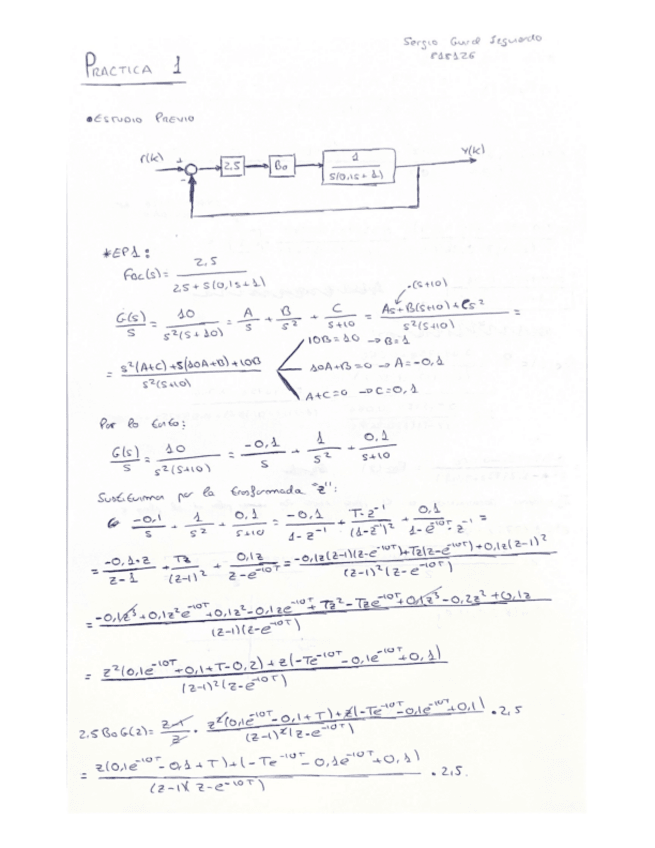 PRACTICA 1
ESTUDIO PREVIO
r(k) + - 2,5 B₀ 1/(s(0,1s+1)) Y(k)
*EP1:
Fbc(s)= 2,5/(2,5+s(0,1s+1))
G(s)/s = 10/(s²(s+10)) = A/s + B/s² + C/(s+10) = (As+B(s+10)+Cs²)/(s²(s+10)) =
·(s+10)
= (s²(A+C)+s(10A+B)+10B)/(s²(s+10))
10B=10 → B=1
10A+B=0 → A=-0,1
A+C=0 → C=0,1
Por lo tanto:
G(s)/s = 10/(s²(s+10)) = -0,1/s + 1/s² + 0,1/(s+10)
Sustituimos por la transformada "z":
-0,1/s + 1/s² + 0,1/(s+10) = -0,1/(1-z⁻¹) + T·z⁻¹/(1-z⁻¹)² + 0,1/(1-e^-10T·z⁻¹) =
= -0,1·z/(z-1) + Tz/(z-1)² + 0,1z/(z-e^-10T) = (-0,1z(z-1)(z-e^-10T)+Tz(z-e^-10T)+0,1z(z-1)²)/((z-1)²(z-e^-10T))
= (-0,1z³+0,1z²e^-10T+0,1z²-0,1ze^-10T+Tz²-Tze^-10T+0,1z³-0,2z²+0,1z)/((z-1)(z-e^-10T))
= (z²(0,1e^-10T+0,1+T-0,2)+z(-Te^-10T-0,1e^-10T+0,1))/((z-1)²(z-e^-10T))
2,5B₀G(z)= (z-1)/z · (z²(0,1e^-10T-0,1+T)+z(-Te^-10T-0,1e^-10T+0,1))/((z-1)²(z-e^-10T)) · 2,5
= (z(0,1e^-10T-0,1+T)+(-Te^-10T-0,1e^-10T+0,1))/((z-1)(z-e^-10T)) · 2,5.